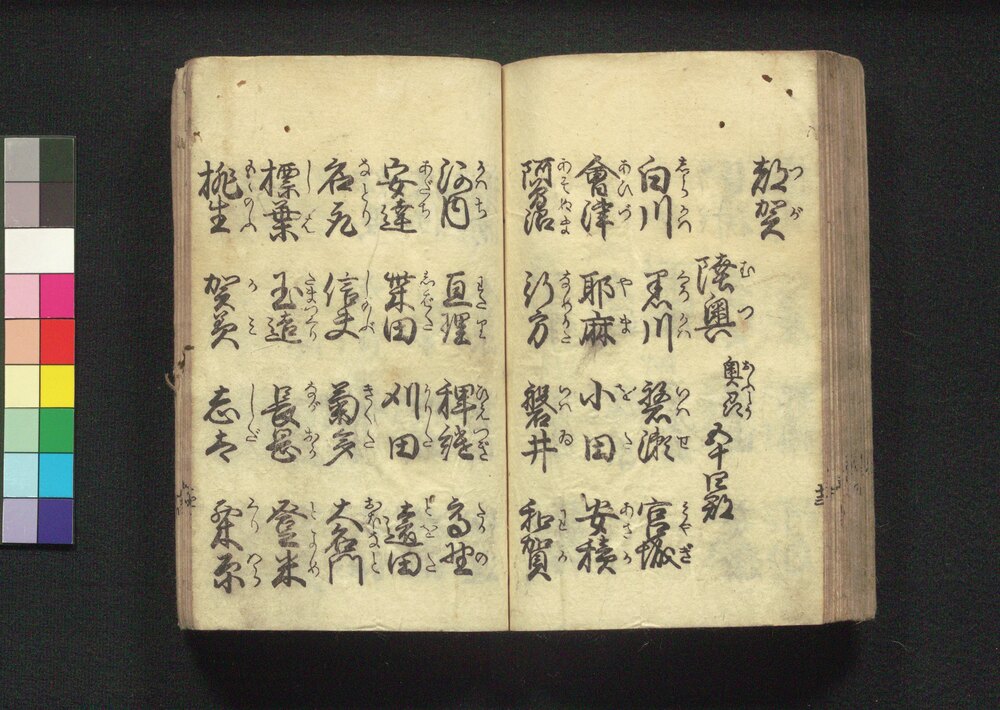 都賀 つが
陸奥 むつ 奥州 おうしう 五十四郡
白川 しらかは 黒川 くろかは 磐瀬 いはせ 宮城 みやぎ
會津 あひづ 耶麻 やま 小田 をだ 安積 あさか
阿曽沼 あそぬま 行方 なめかた 磐井 いはゐ 和賀 わか
河内 かはち 亘理 わたり 稗継 ひえつぎ 高野 たかの
安達 あだち 柴田 しばた 刈田 かりた 遠田 とをだ
名取 なとり 信夫 しのぶ 菊多 きくた 大名門
標葉 しねは 玉造 たまつくり 長岡 ながおか 登米 とよめ
桃生 もゝのふ 賀美 かみ 志太 しだ 栗原 くりはら